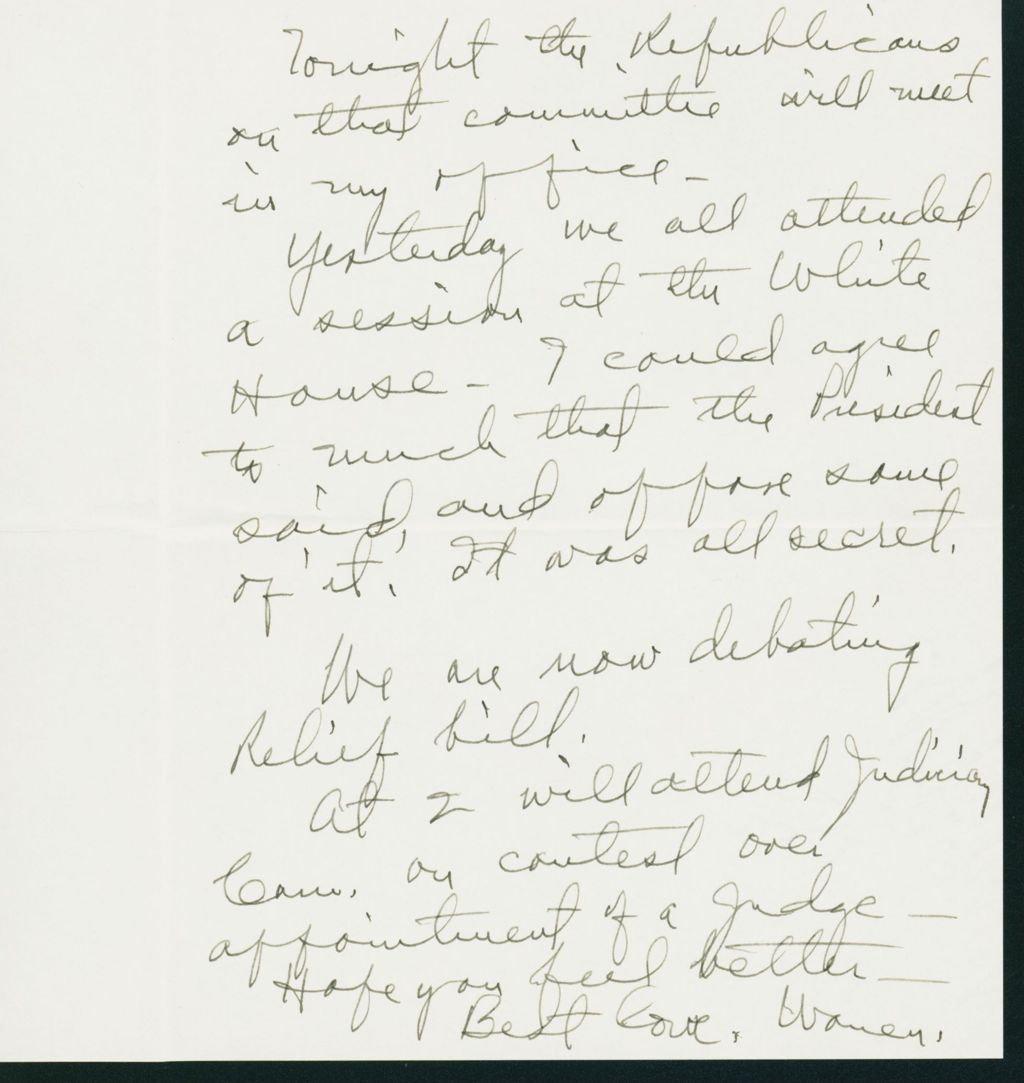 Tonight the Republicans
on that committee will meet
in my office -
Yesterday we all attended
a session at the White
House - I could agree
to much that the President
said, and oppose some
of it. It was all secret.
We are now debating
Relief bill.
At 2 will attend Judiciary
Com. on contest over
appointment of a Judge -
Hope you feel better -
Best love. Warren.